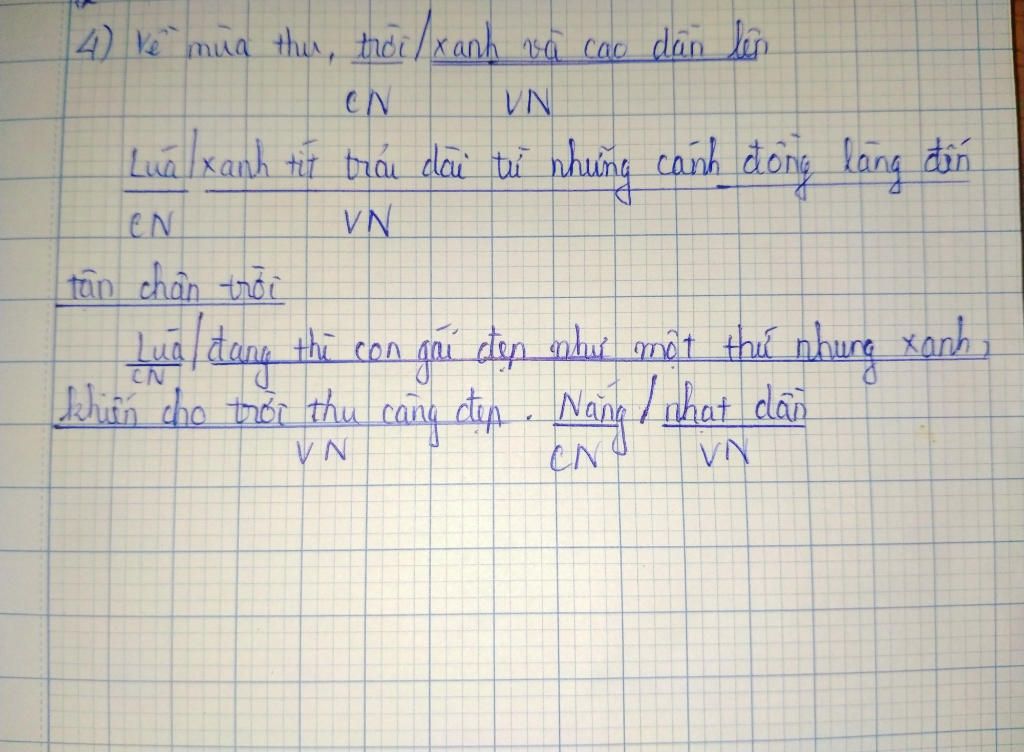 4) Về mùa thu, trời/xanh và cao dần lên
CN VN
Lúa/xanh tít trải dài từ những cánh đồng làng đến
CN VN
tận chân trời
Lúa/đang thì con gái đẹp như một thứ nhung xanh,
CN
khiến cho trời thu càng đẹp. Nắng/nhạt dần
VN CN VN